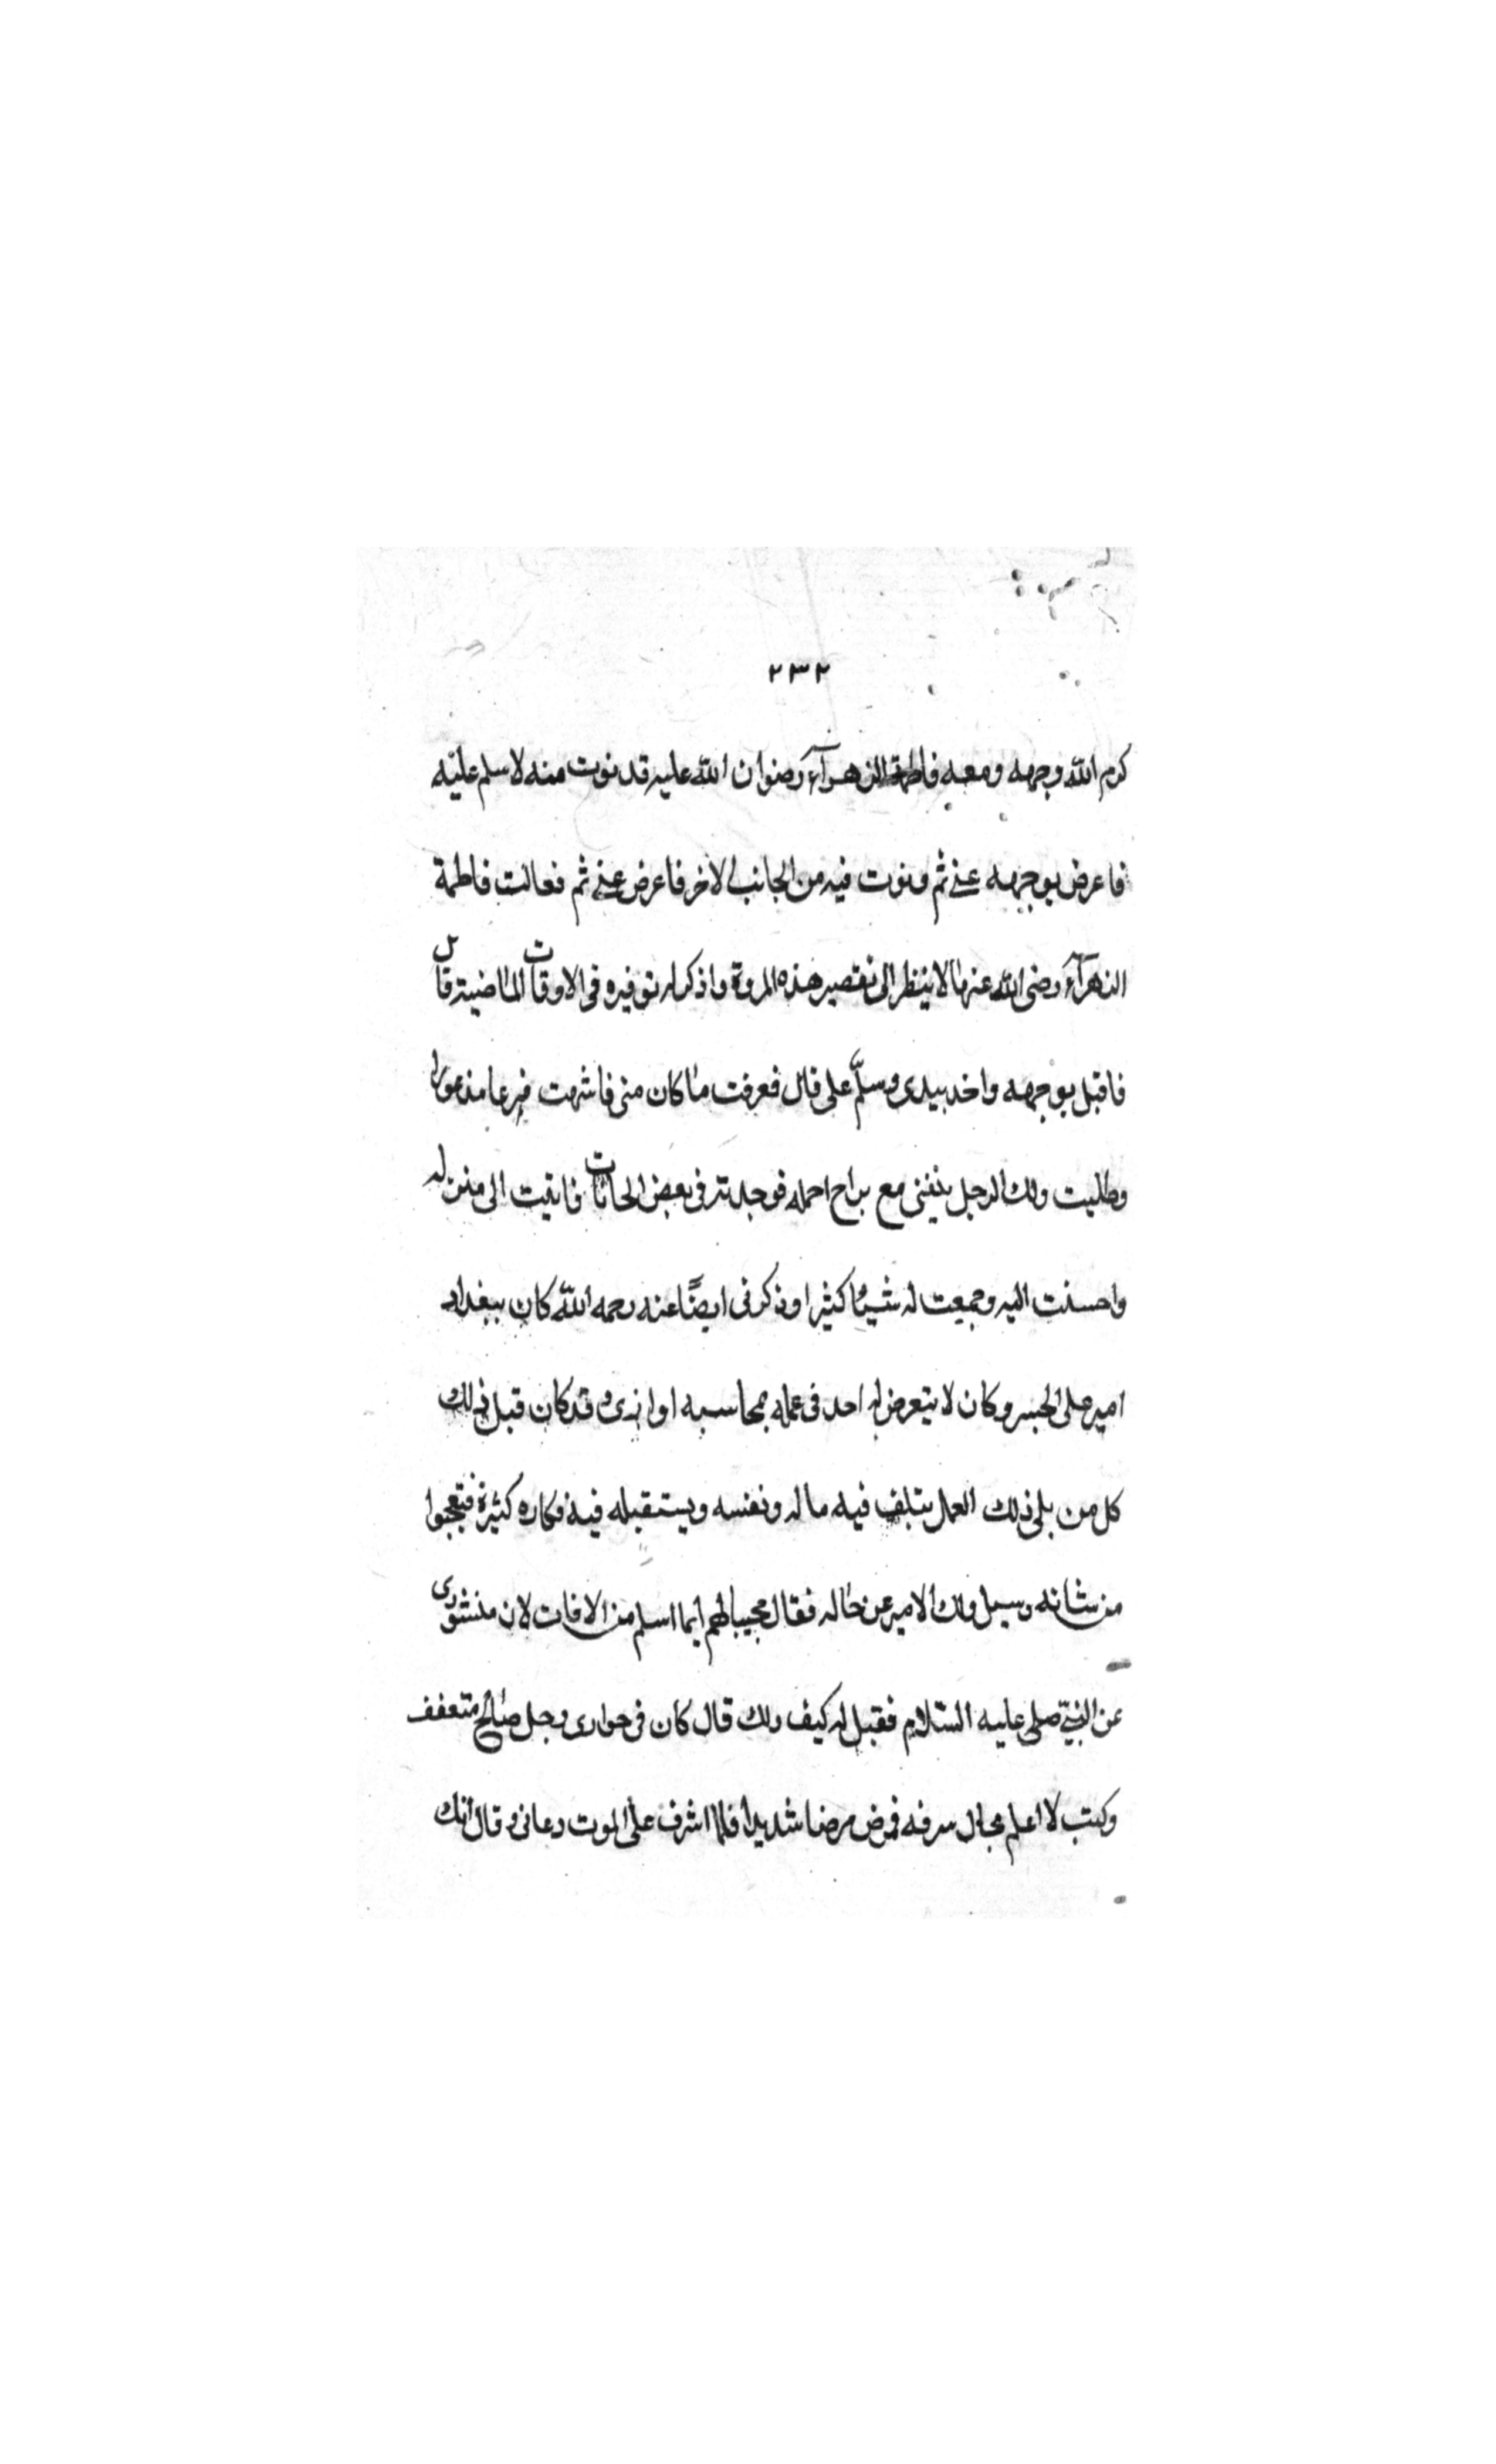 ٢٣٢
كرم الله وجهه ومعه فاطمة الزهرآء رضوان الله عليه قدنوت منه لاسلم عليه
فاعرض بوجهه عنى ثم ونوت فيه من الجانب الاخر فاعرض عنى ثم فعالت فاطمة
الزهرآء رضى الله عنها لا ينظر الى تقصير هذه المروة واذكر له توفيره فى الاوقات الماضية قال
فاقبل بوجهه واخد بيدى وسلّم على قال فعرفت ما كان منى فاشهت فزعا مذعورا
وطلبت ولك الرجل مع احمله فوجدته فى بعض الحانات فاتيت الى منزله
واحسنت اليه وجمعت له شيئا كثيرا وذكر فى ايضًا عنه رحمه الله كان ببغداد
امير على الجسر وكان لا يتعرض له احد فى عمله بمحاسبه او اذى وقد كان قبل ذلك
كل من يلى ذلك العمل يتلف فيه ماله ونفسه ويستقبله فيه مكاره كثيرة فتعجبوا
من شانه وسيل ولك الامير عن حاله فقال مجيبا لهم انما اسلم من الافات لان منشورى
عن النبىّ صلى عليه السّلام فقيل له كيف ولك قال كان فى جوارى رجل صالح متعفف
وكنت لا اعلم بحال سرفه فمرض مرضا شديدا فلما اشرف على الموت دعانى وقال انك